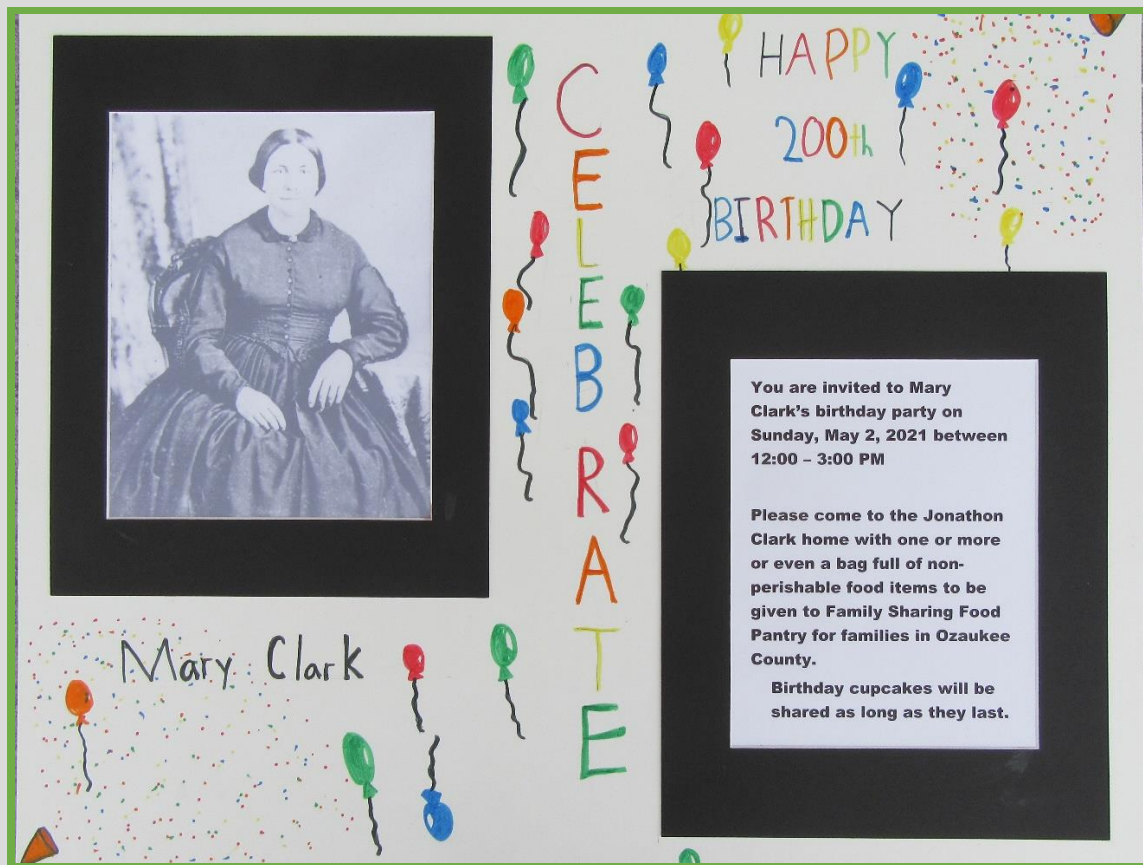 CELEBRATE
HAPPY
200th
BIRTHDAY
Mary Clark
You are invited to Mary
Clark's birthday party on
Sunday, May 2, 2021 between
12:00 – 3:00 PM
Please come to the Jonathon
Clark home with one or more
or even a bag full of non-
perishable food items to be
given to Family Sharing Food
Pantry for families in Ozaukee
County.
Birthday cupcakes will be
shared as long as they last.